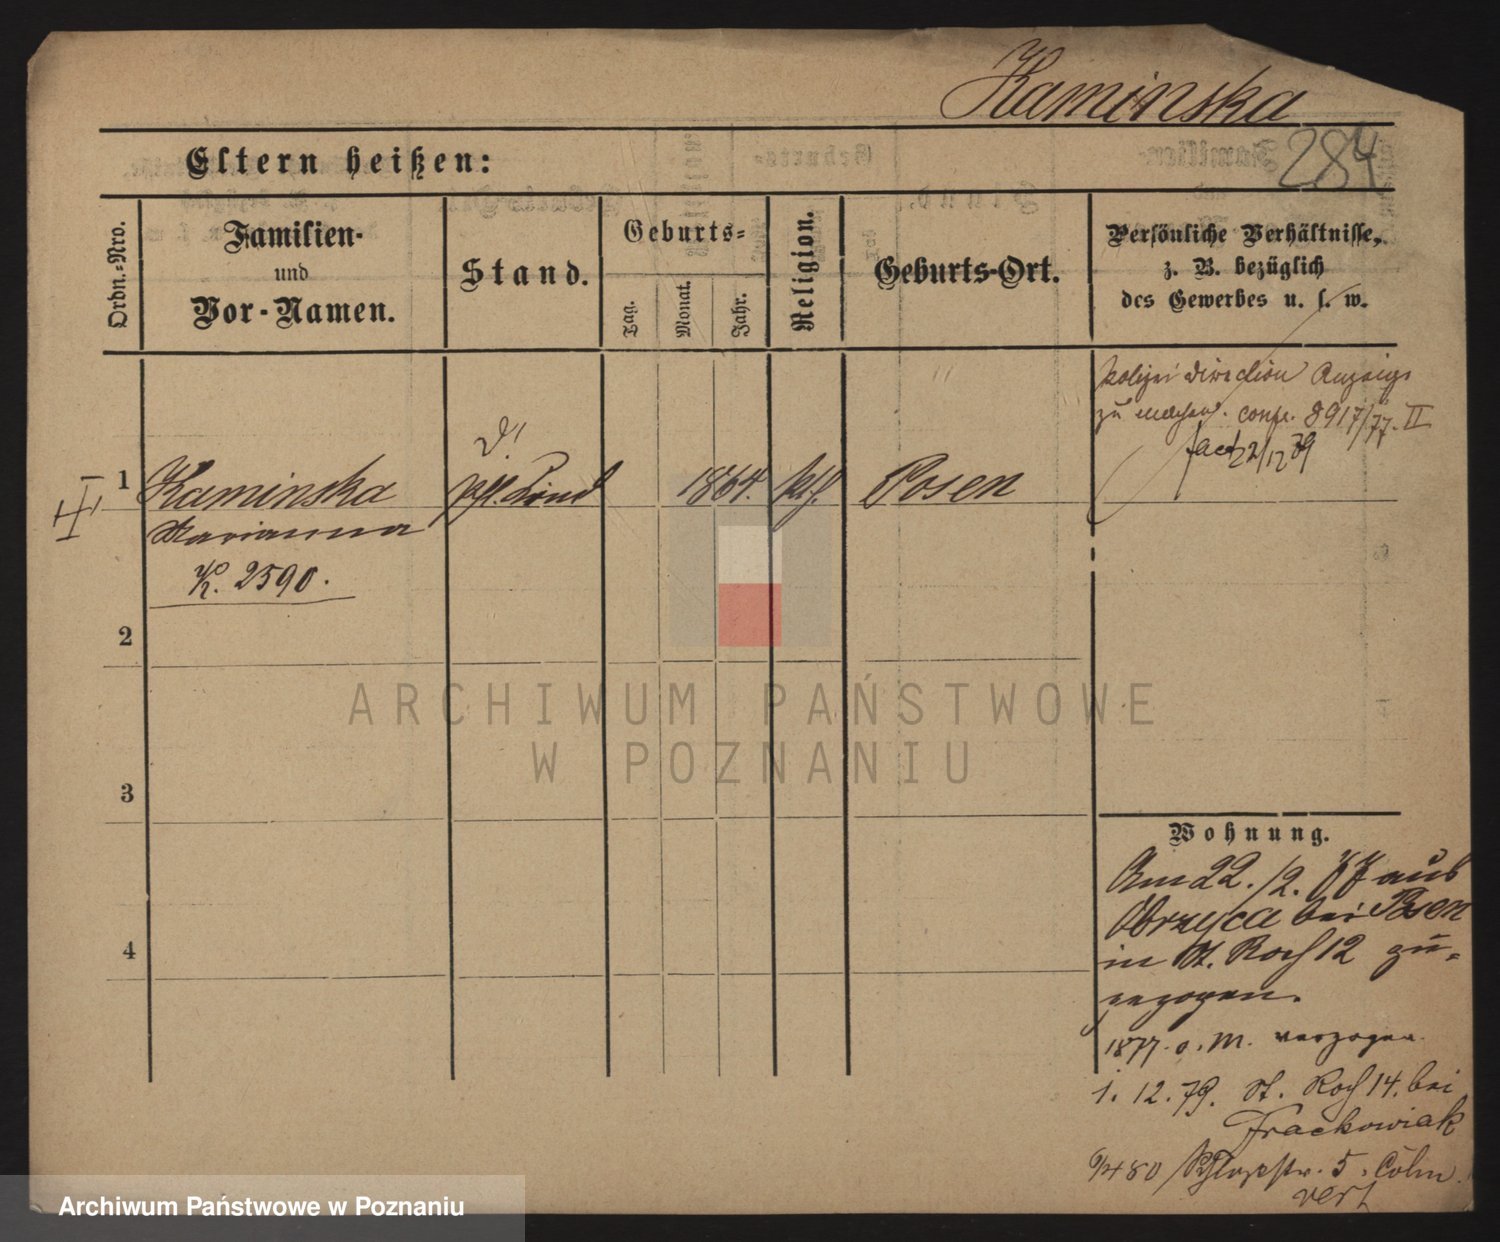 Kaminska
284
Eltern heißen:
Ordn.-Nro.
Familien-
und
Vor-Namen.
Stand.
Geburts-
Tag.
Monat.
Jahr.
Religion.
Geburts-Ort.
Persönliche Verhältnisse,
z. B. bezüglich
des Gewerbes u. s. w.
Polizei Direction Anzeige
zu machen. conf. 8917/77. II
fact 22/12 79
1
Kaminska
1864.
kth.
Posen
Marianna
K. 2590.
2
3
4
Wohnung.
Am 22./2. 77 aus
Obrzyca bei Posen
in St. Roch 12 zu-
gezogen.
1877. o. M. verzogen.
1. 12. 79. St. Roch 14. bei
Frackowiak
80 5. Cölm
vert
ARCHIWUM PAŃSTWOWE
W POZNANIU
Archiwum Państwowe w Poznaniu